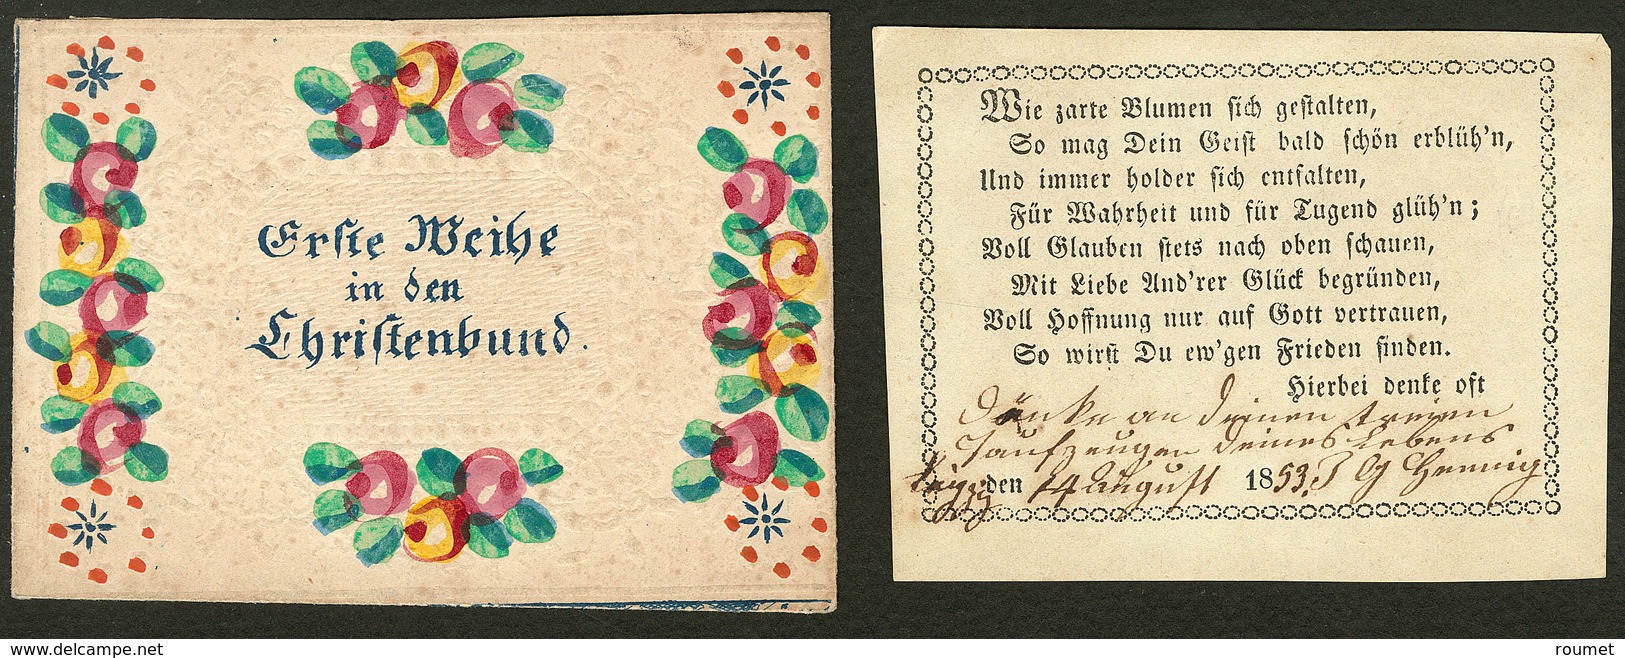 Erste Weihe
in den
Christenbund.
Wie zarte Blumen sich gestalten,
So mag Dein Geist bald schön erblüh'n,
Und immer holder sich entfalten,
Für Wahrheit und für Tugend glüh'n;
Voll Glauben stets nach oben schauen,
Mit Liebe And'rer Glück begründen,
Voll Hoffnung nur auf Gott vertrauen,
So wirst Du ew'gen Frieden finden.
Hierbei denke oft
Denke an deinen treuen
Taufzeugen deines Lebens
den 14 August 1853. J G Hennig
www.delcampe.net
roumet